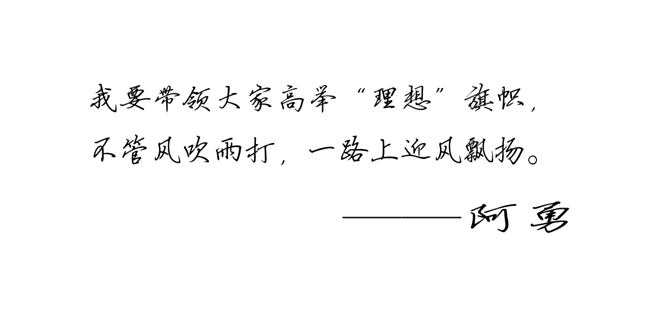 我要带领大家高举“理想”旗帜，
不管风吹雨打，一路上迎风飘扬。
————阿勇